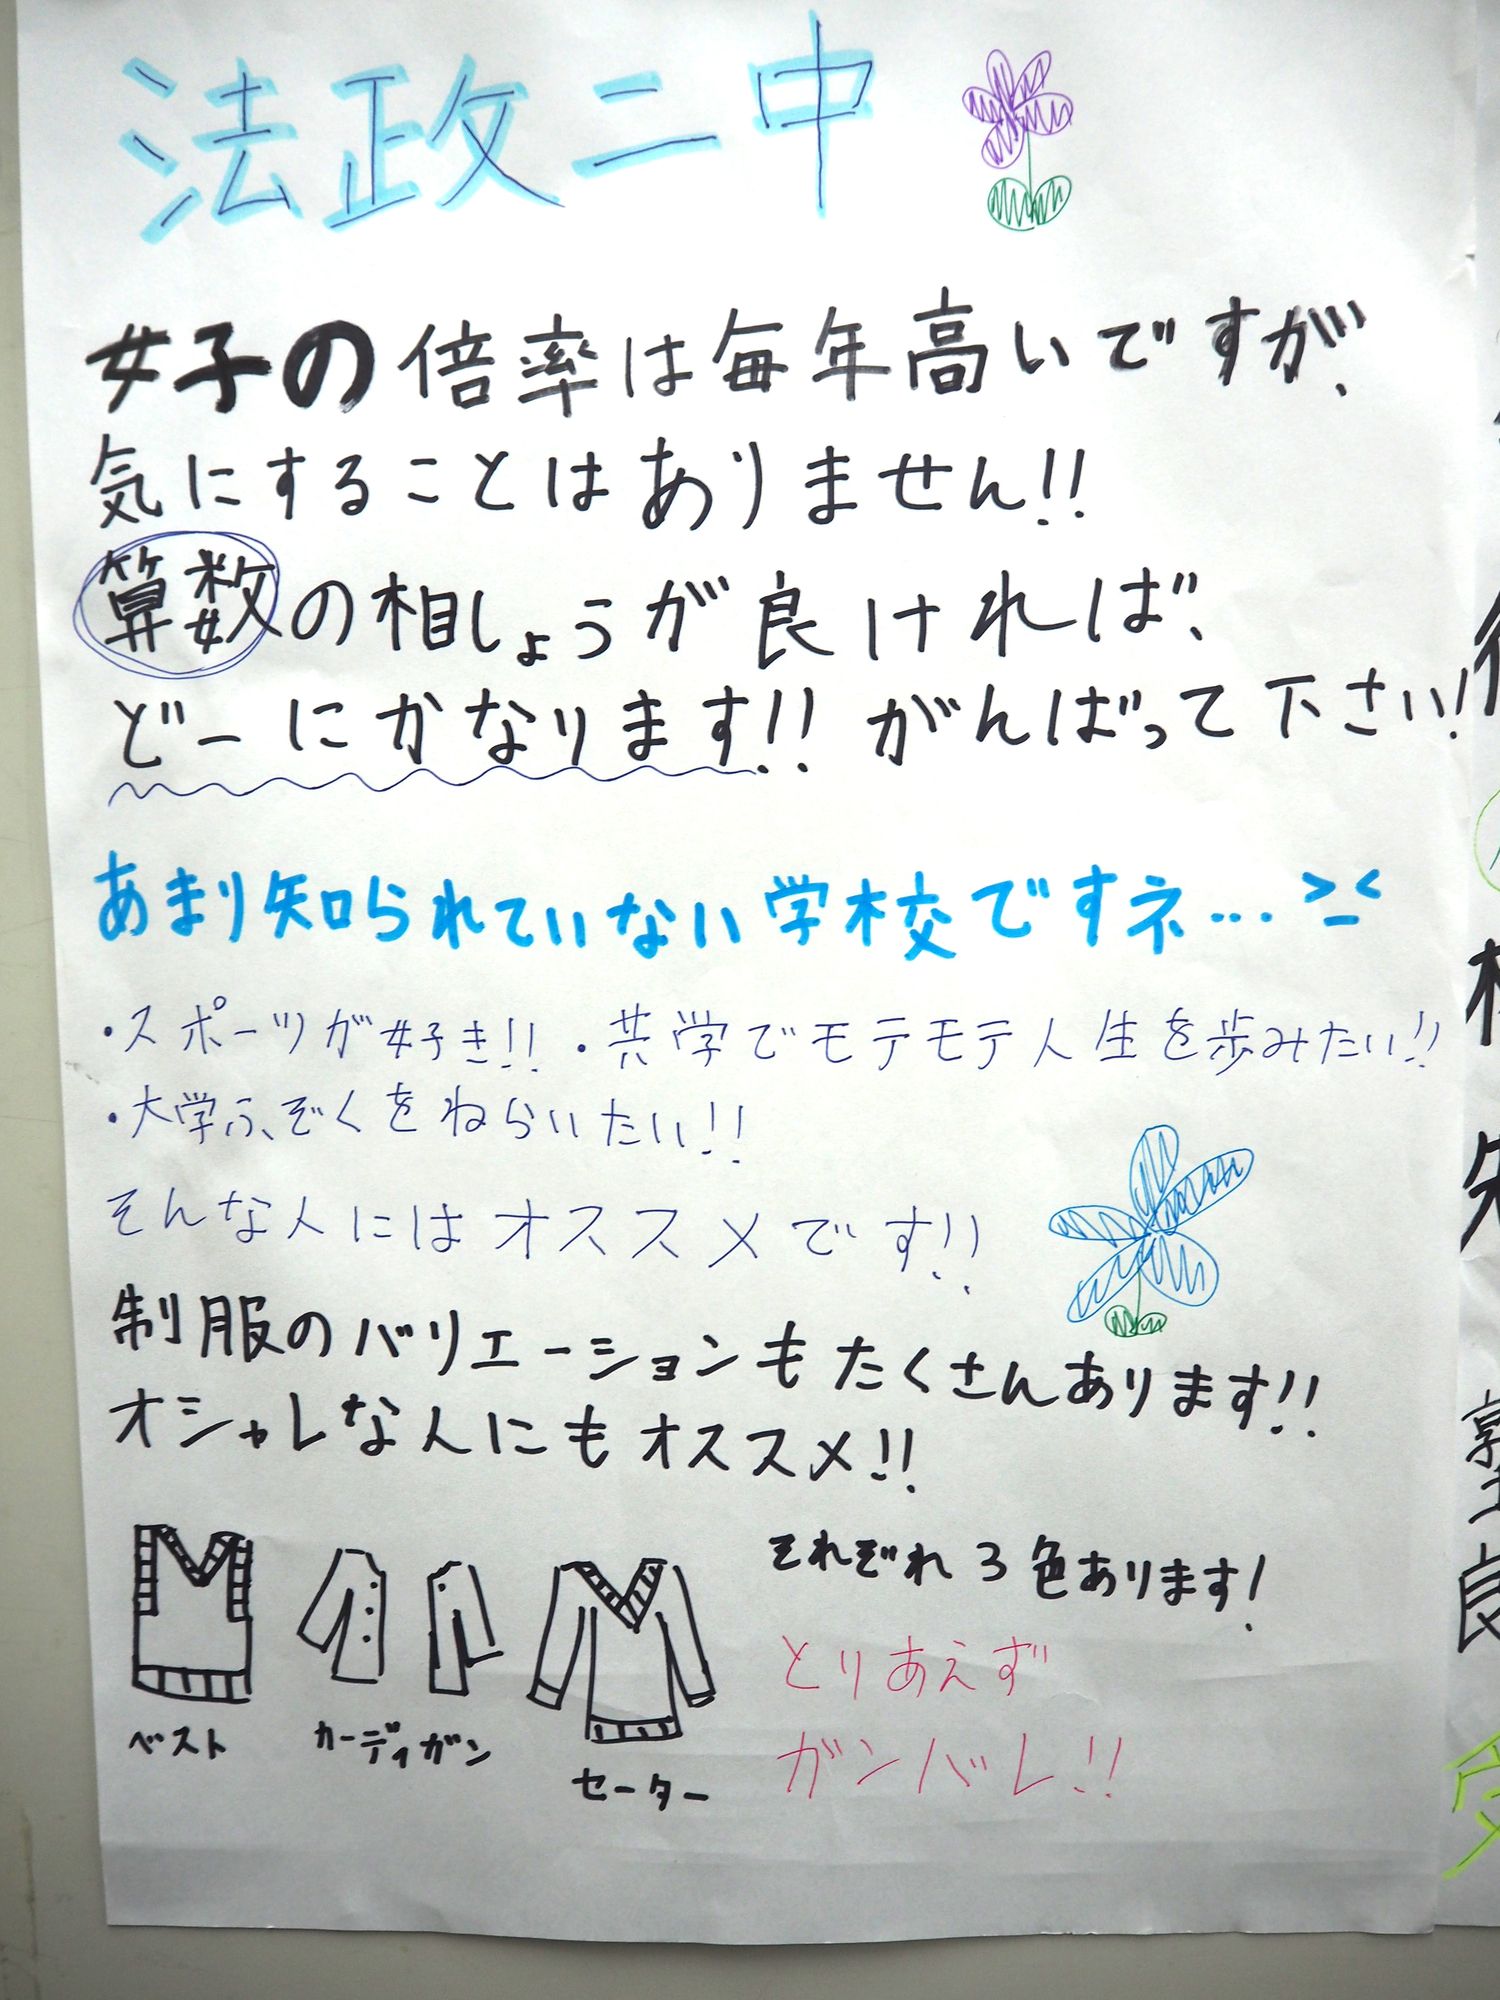 法政二中
女子の倍率は毎年高いですが、
気にすることはありません!!
算数の相しょうが良ければ、
どーにかなります!! がんばって下さい!
あまり知られていない学校ですネ… >_<
・スポーツが好き!! ・共学でモテモテ人生を歩みたい!!
・大学ふぞくをねらいたい!!
そんな人にはオススメです!!
制服のバリエーションもたくさんあります!!
オシャレな人にもオススメ!!
それぞれ3色あります!
とりあえず
ガンバレ!!
ベスト
カーディガン
セーター
塾
良